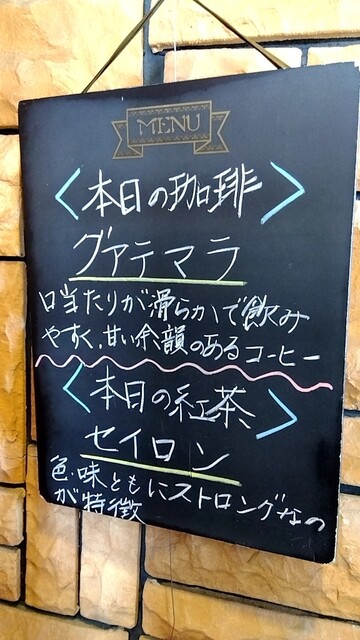 MENU
<本日の珈琲>
グアテマラ
口当たりが滑らかで飲み
やすく、甘い余韻のあるコーヒー
<本日の紅茶>
セイロン
色・味ともにストロングなの
が特徴